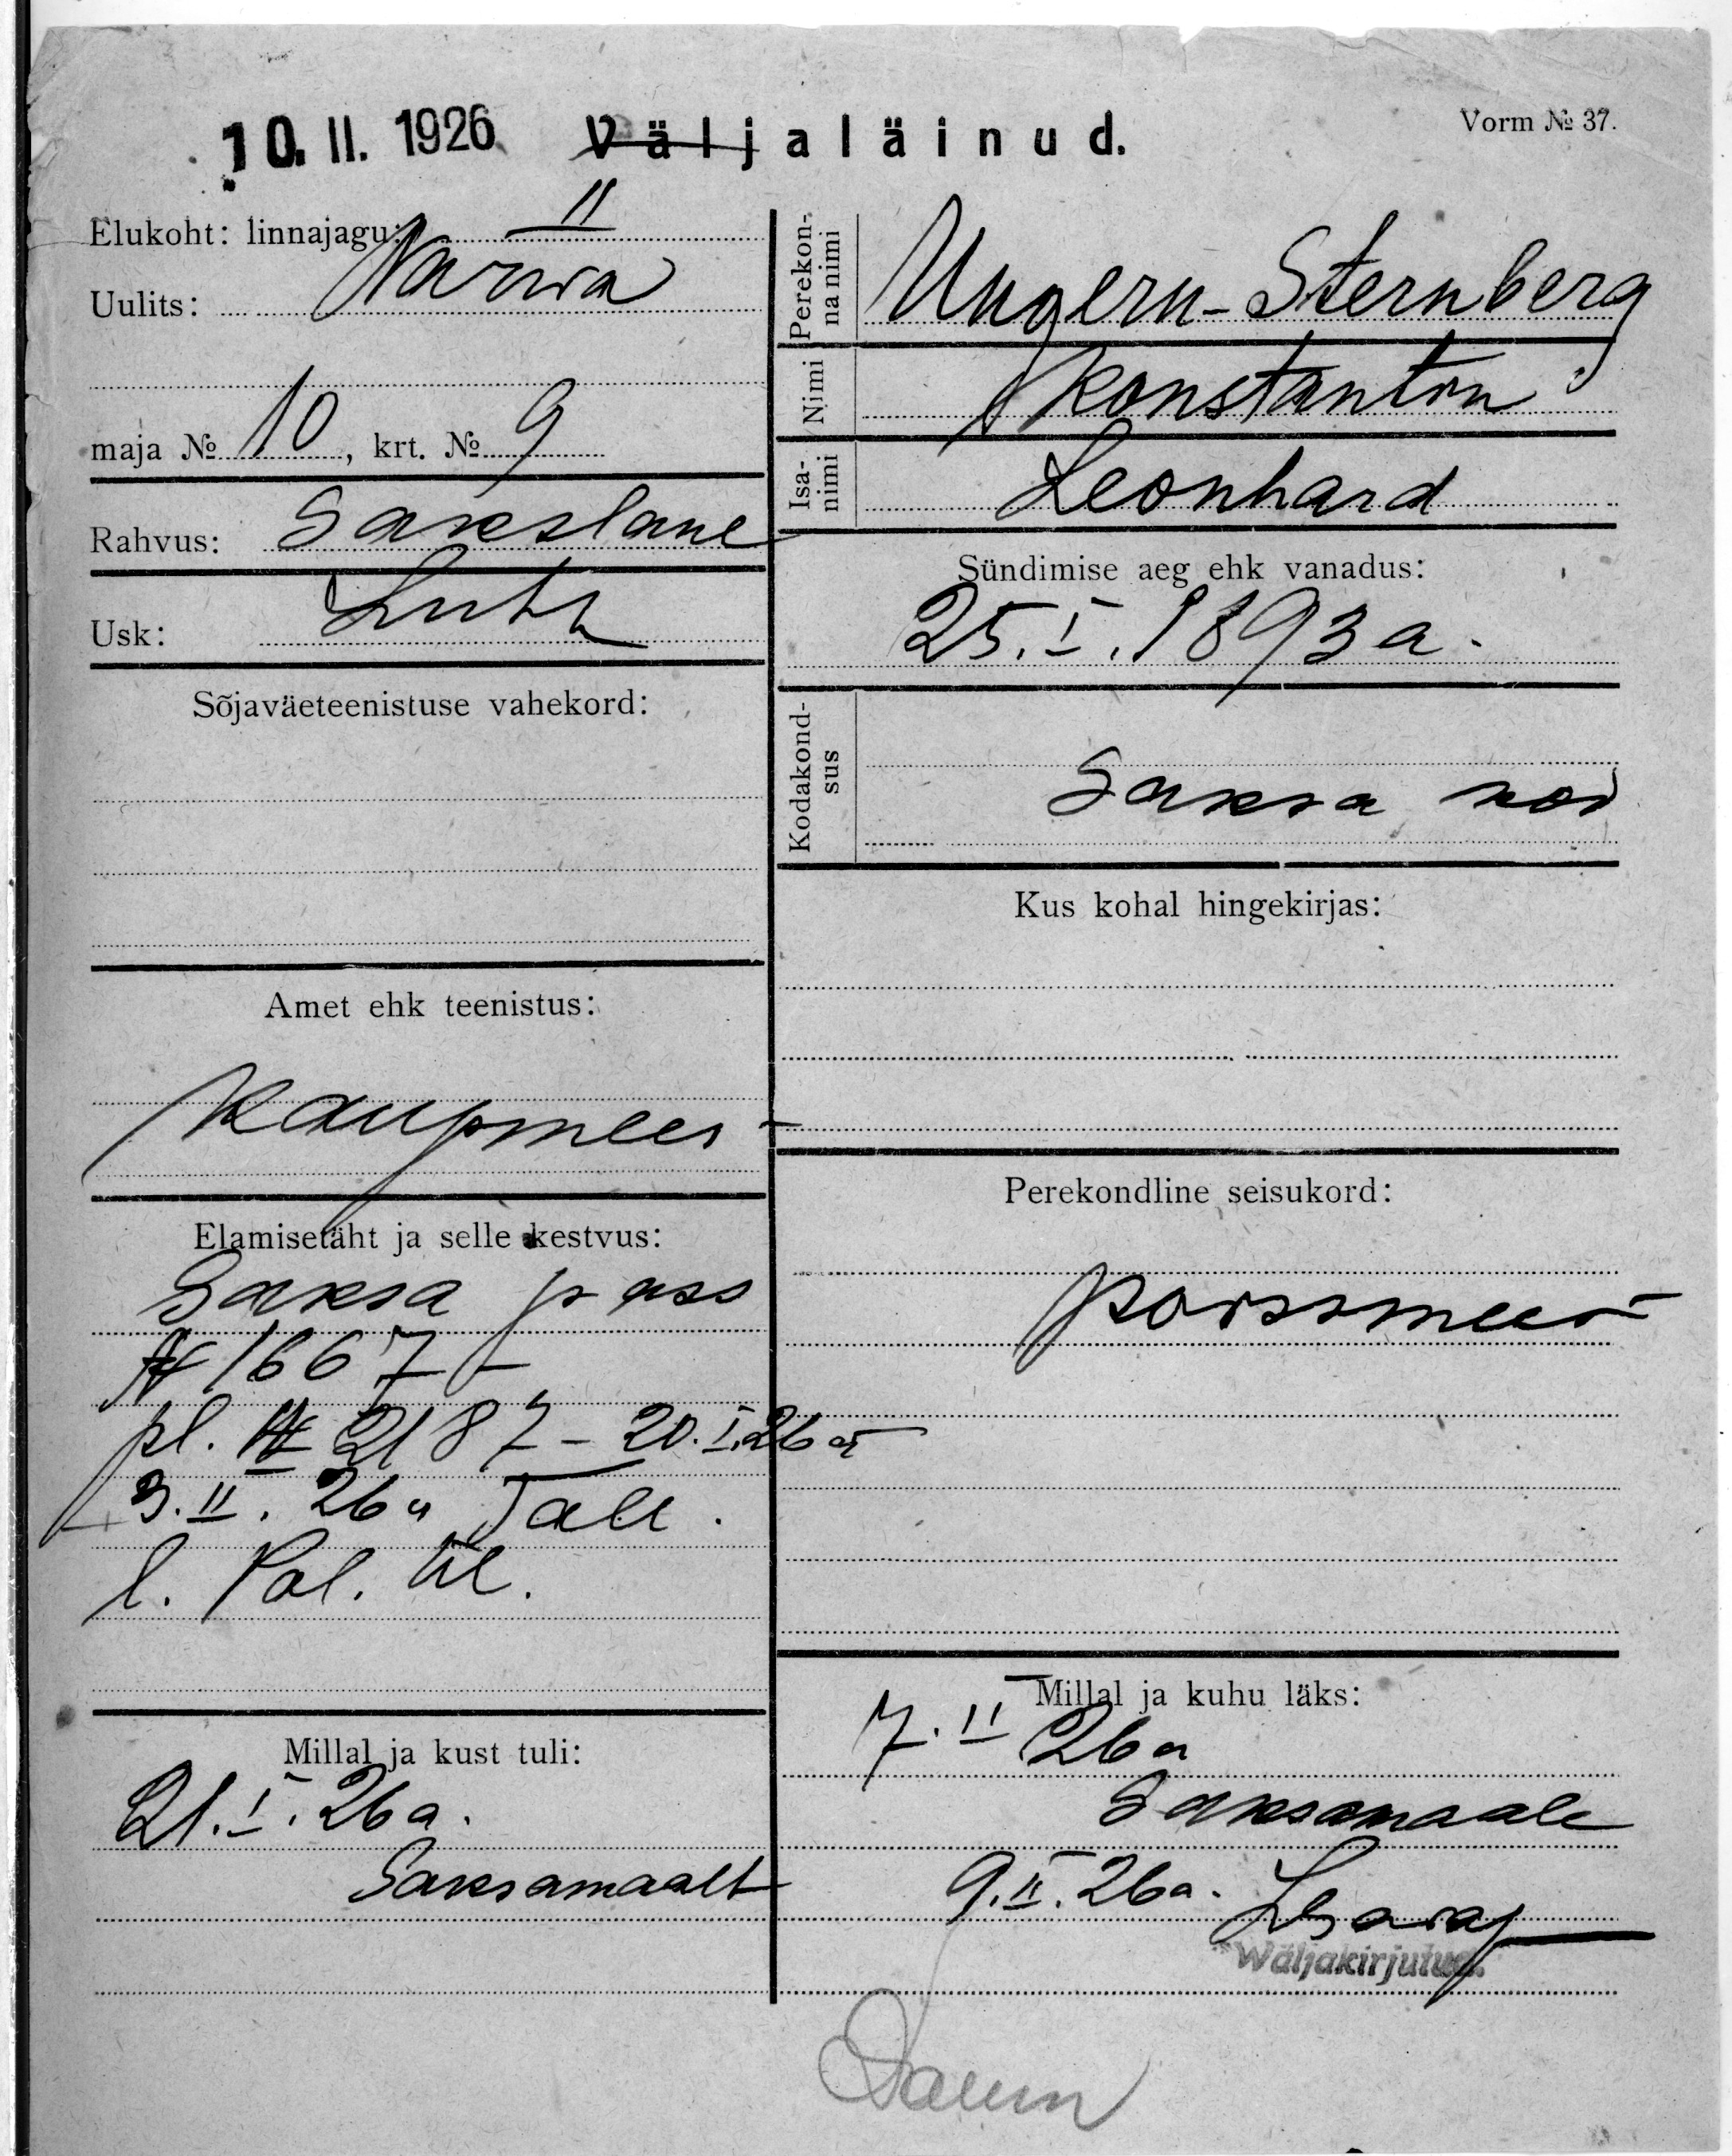 10. II. 1926 Väljaläinud. Vorm № 37.
Elukoht: linnajagu: II
Uulits: Narva
maja № 10, krt. № 9
Rahvus: Sakslane
Usk: Luth
Sõjaväeteenistuse vahekord:
Amet ehk teenistus:
Kaupmees
Elamisetäht ja selle kestvus:
Saksa pass
№ 1667
pl. № 2187 – 20.I.26 a
3.II.26 a Tall.
l. Pol. ül.
Millal ja kust tuli:
21.I.26 a.
Saksamaalt
Perekon-
na nimi
Ungern-Sternberg
Nimi
Konstantin
Isa-
nimi
Leonhard
Sündimise aeg ehk vanadus:
25.I.1893 a.
Kodakond-
sus
Saksa kod
Kus kohal hingekirjas:
Perekondline seisukord:
poissmees
Millal ja kuhu läks:
7.II 26 a
Saksamaale
9.II.26 a.
Wäljakirjutud.